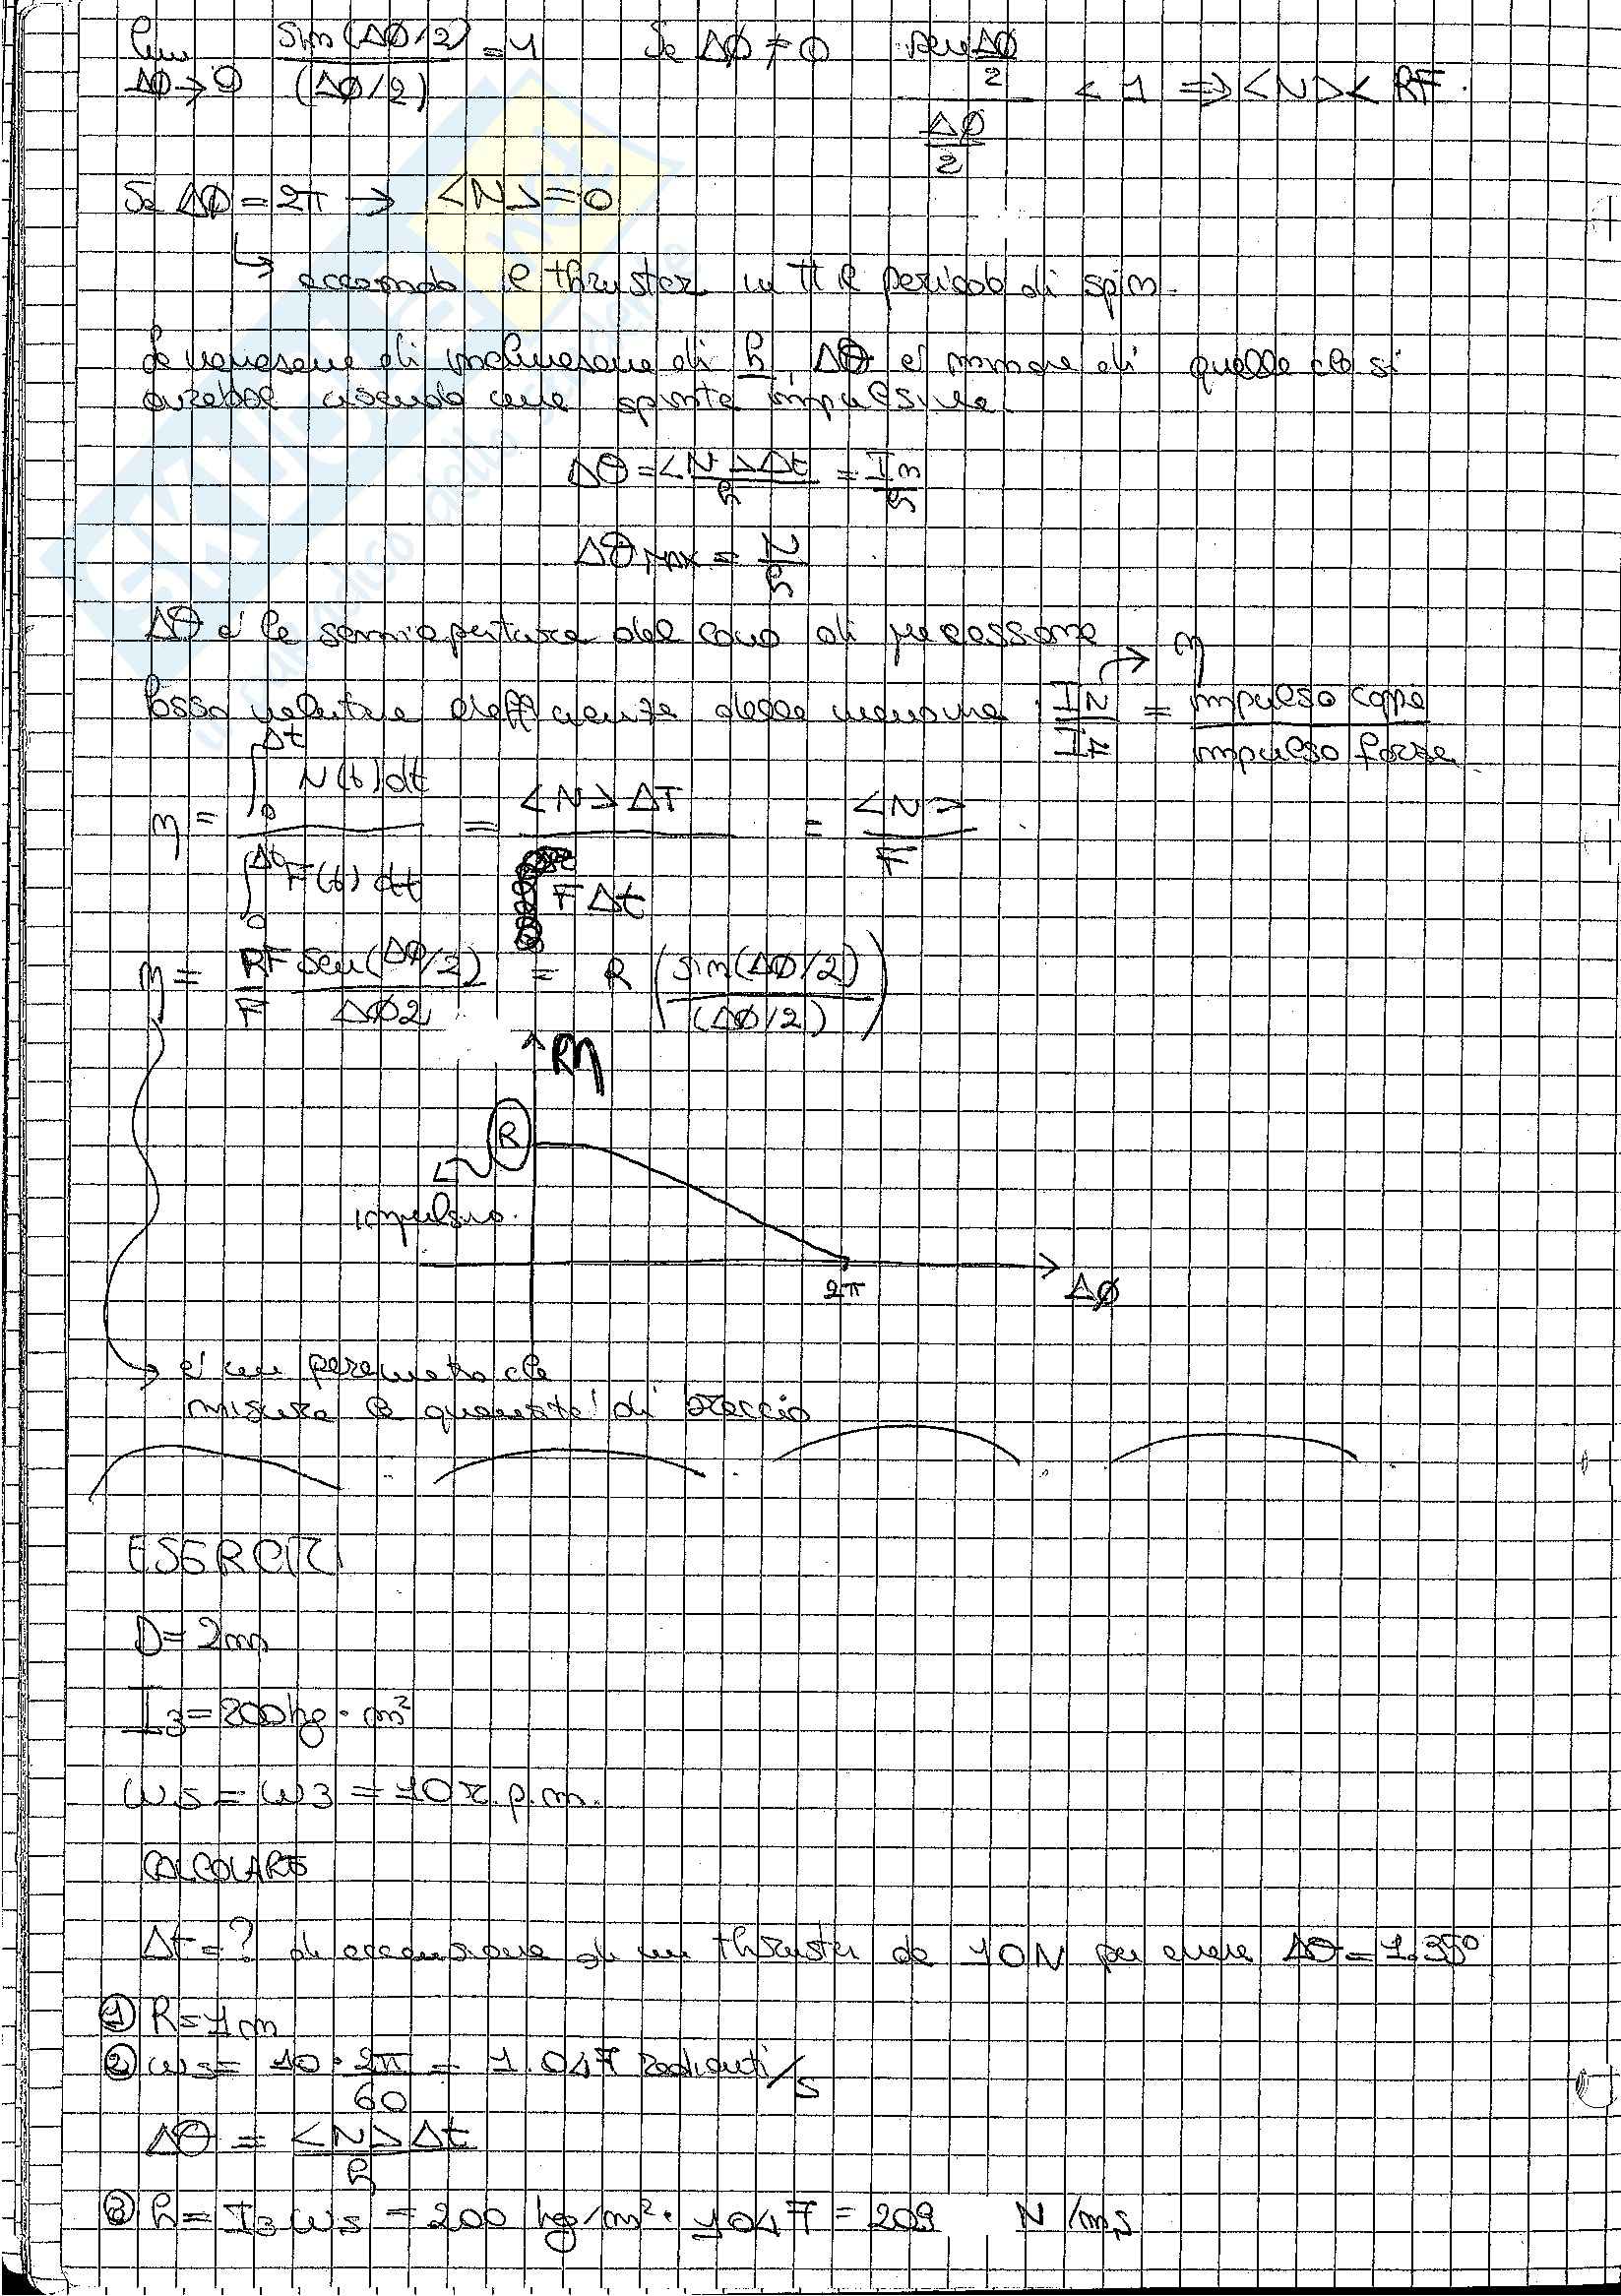 lim Δφ→0 sin(Δφ/2)/(Δφ/2) = 1 Se Δφ ≠ 0 sen Δφ/2 / Δφ/2 < 1 ⇒ <N> < RF.
Se Δφ = 2π → <N> = 0
↳ accendo il thruster in tt il periodo di spin.
la variazione di inclinazione di h, ΔΘ é minore di quella che si
avrebbe usando una spinta impulsiva.
ΔΘ = <N>Δt/h = In/h
ΔΘ MAX = N/h
ΔΘ é la semiapertura del cono di precessione
Posso valutare l'efficienza della manovra: IN/IF = impulso coppia/impulso forza → η
η = ∫₀^Δt N(t)dt / ∫₀^Δt F(t)dt = <N>ΔT / FΔt = <N>/F
η = RF/F sen(Δφ/2)/Δφ2 = R (sin(Δφ/2)/(Δφ/2))
Rη
R
impulsivo.
2π
Δφ
→ é un parametro che
misura la quantita' di braccio
ESERCIZI
D = 2m
I3 = 200 kg · m²
ωs = ω3 = 10 r.p.m.
CALCOLARE
Δt = ? di accensione di un thruster da 10N per avere ΔΘ = 1.35°
① R = 1m
② ωs = 10 · 2π/60 = 1.047 radianti/s
ΔΘ = <N>Δt/h
③ h = I3 ωs = 200 kg/m² · 1047 = 209 N/ms